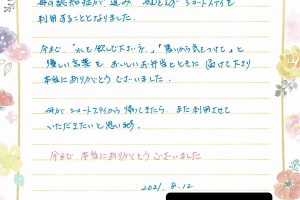 母の認知症が進み、
ショートステイを
利用することとなりました。
今まで、「お茶も飲んで下さい」「暑いから気をつけて」と
優しい言葉を おいしいお弁当とともに 届けて下さり
本当にありがとうございました。
母がショートステイから帰ってきたら、また利用させて
いただきたいと思います。
今まで 本当にありがとうございました
2021. 8.12